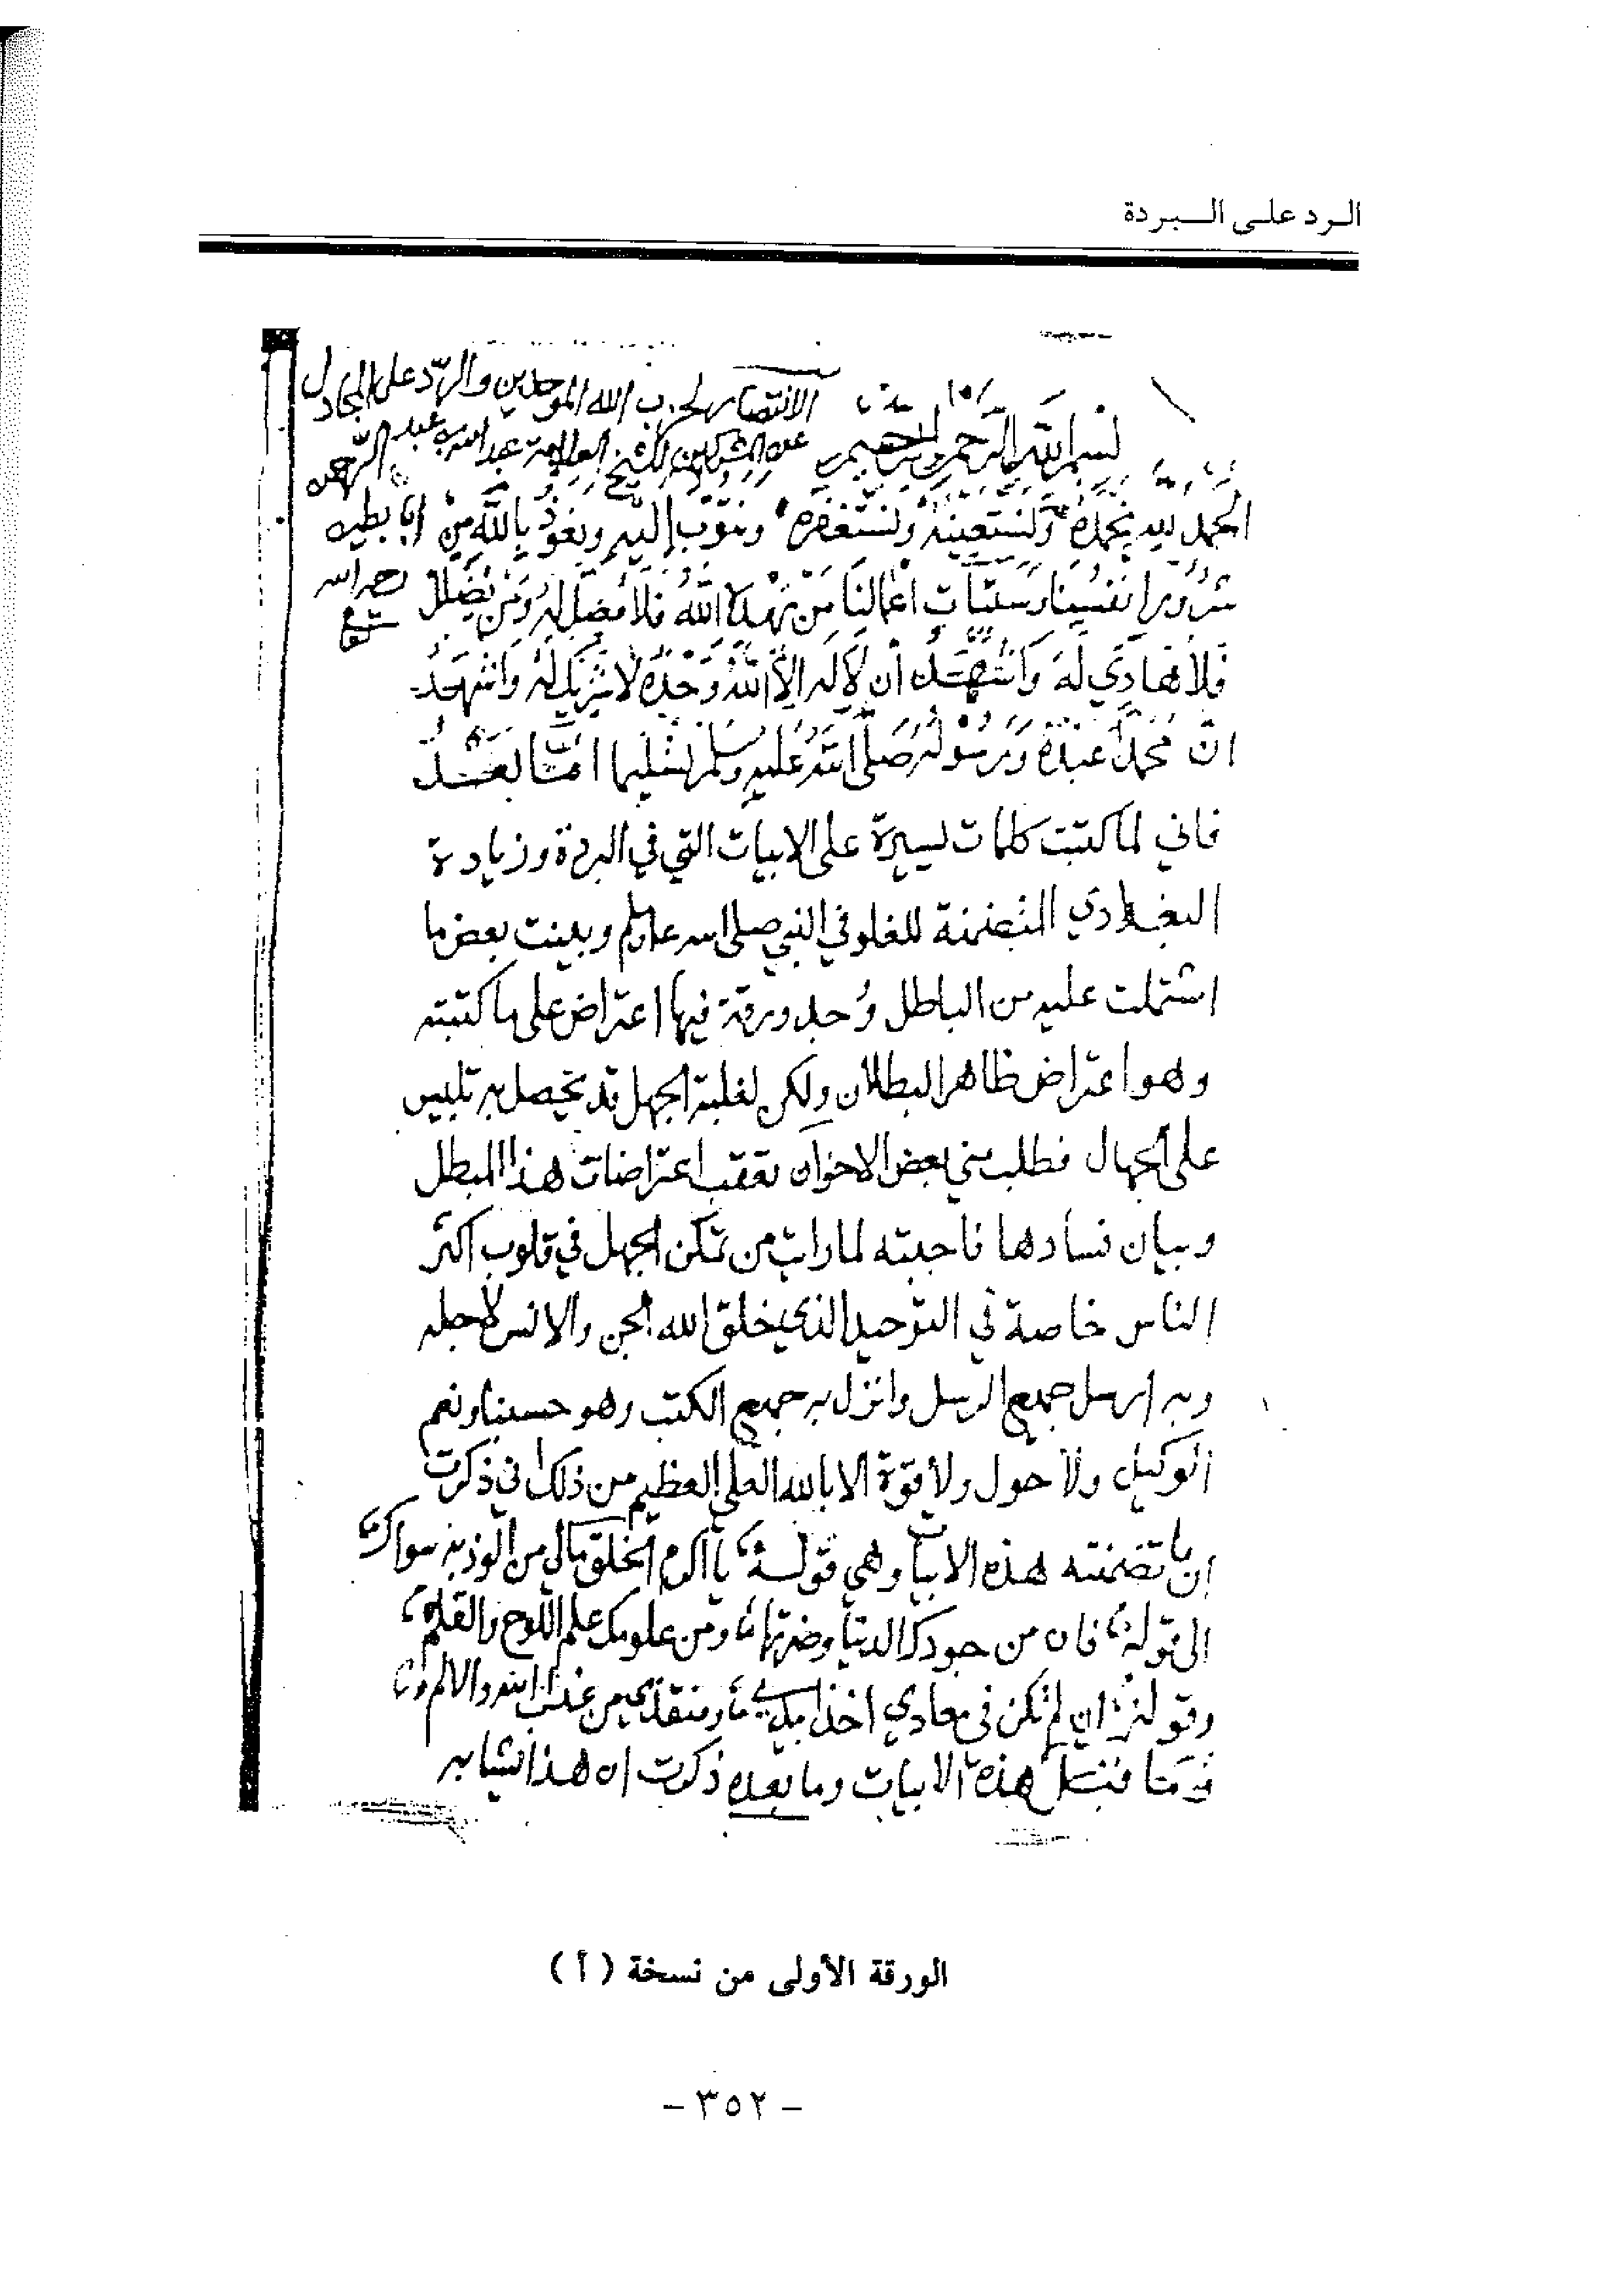 الرد على البردة
الانتصار لحزب الله الموحدين والرد على المجادل
بسم الله الرحمن الرحيم
عن المشركين للشيخ العلامة عبد الله بن عبد الرحمن
الحمد لله نحمده ونستعينه ونستغفره ونتوب إليه ونعوذ بالله من
أبا بطين
شرور انفسنا وسيئات أعمالنا من يهده الله فلا مضل له ومن يضلل
رحمه الله
فلا هادي له وأشهد أن لا إله إلا الله وحده لا شريك له وأشهد
ان محمدا عبده ورسوله صلى الله عليه وسلم تسليما اما بعد
فاني لما كتبت كلمات يسيرة على الابيات التي في البردة وزيادة
البغدادي المتضمنة للغلو في النبي صلى الله عليه وسلم وبينت بعض ما
اشتملت عليه من الباطل وُجد ورقة فيها اعتراض على ما كتبته
وهو اعتراض ظاهر البطلان ولكن لغلبة الجهل قد يحصل به تلبيس
على الجهال فطلب مني بعض الاخوان تعقب اعتراضات هذا المبطل
وبيان فسادها فاجبته لما رايت من تمكن الجهل في قلوب اكثر
الناس خاصة في التوحيد الذي خلق الله الجن والانس لأجله
وبه ارسل جميع الرسل وانزل به جميع الكتب وهو حسبنا ونعم
الوكيل ولا حول ولا قوة الا بالله العلي العظيم من ذلك اني ذكرت
ان ما تضمنته هذه الابيات وهي قوله يا اكرم الخلق مالي من الوذ به سواك
الى قوله فان من جودك الدنيا وضرتها ومن علومك علم اللوح والقلم
وقوله ان لم تكن في معادي اخذا بيدي ومنقذي من عذاب الله والالم
هذه الابيات وما بعده ذكرت ان هذا يشابه
الورقة الأولى من نسخة (أ)
- ٣٥٢ -